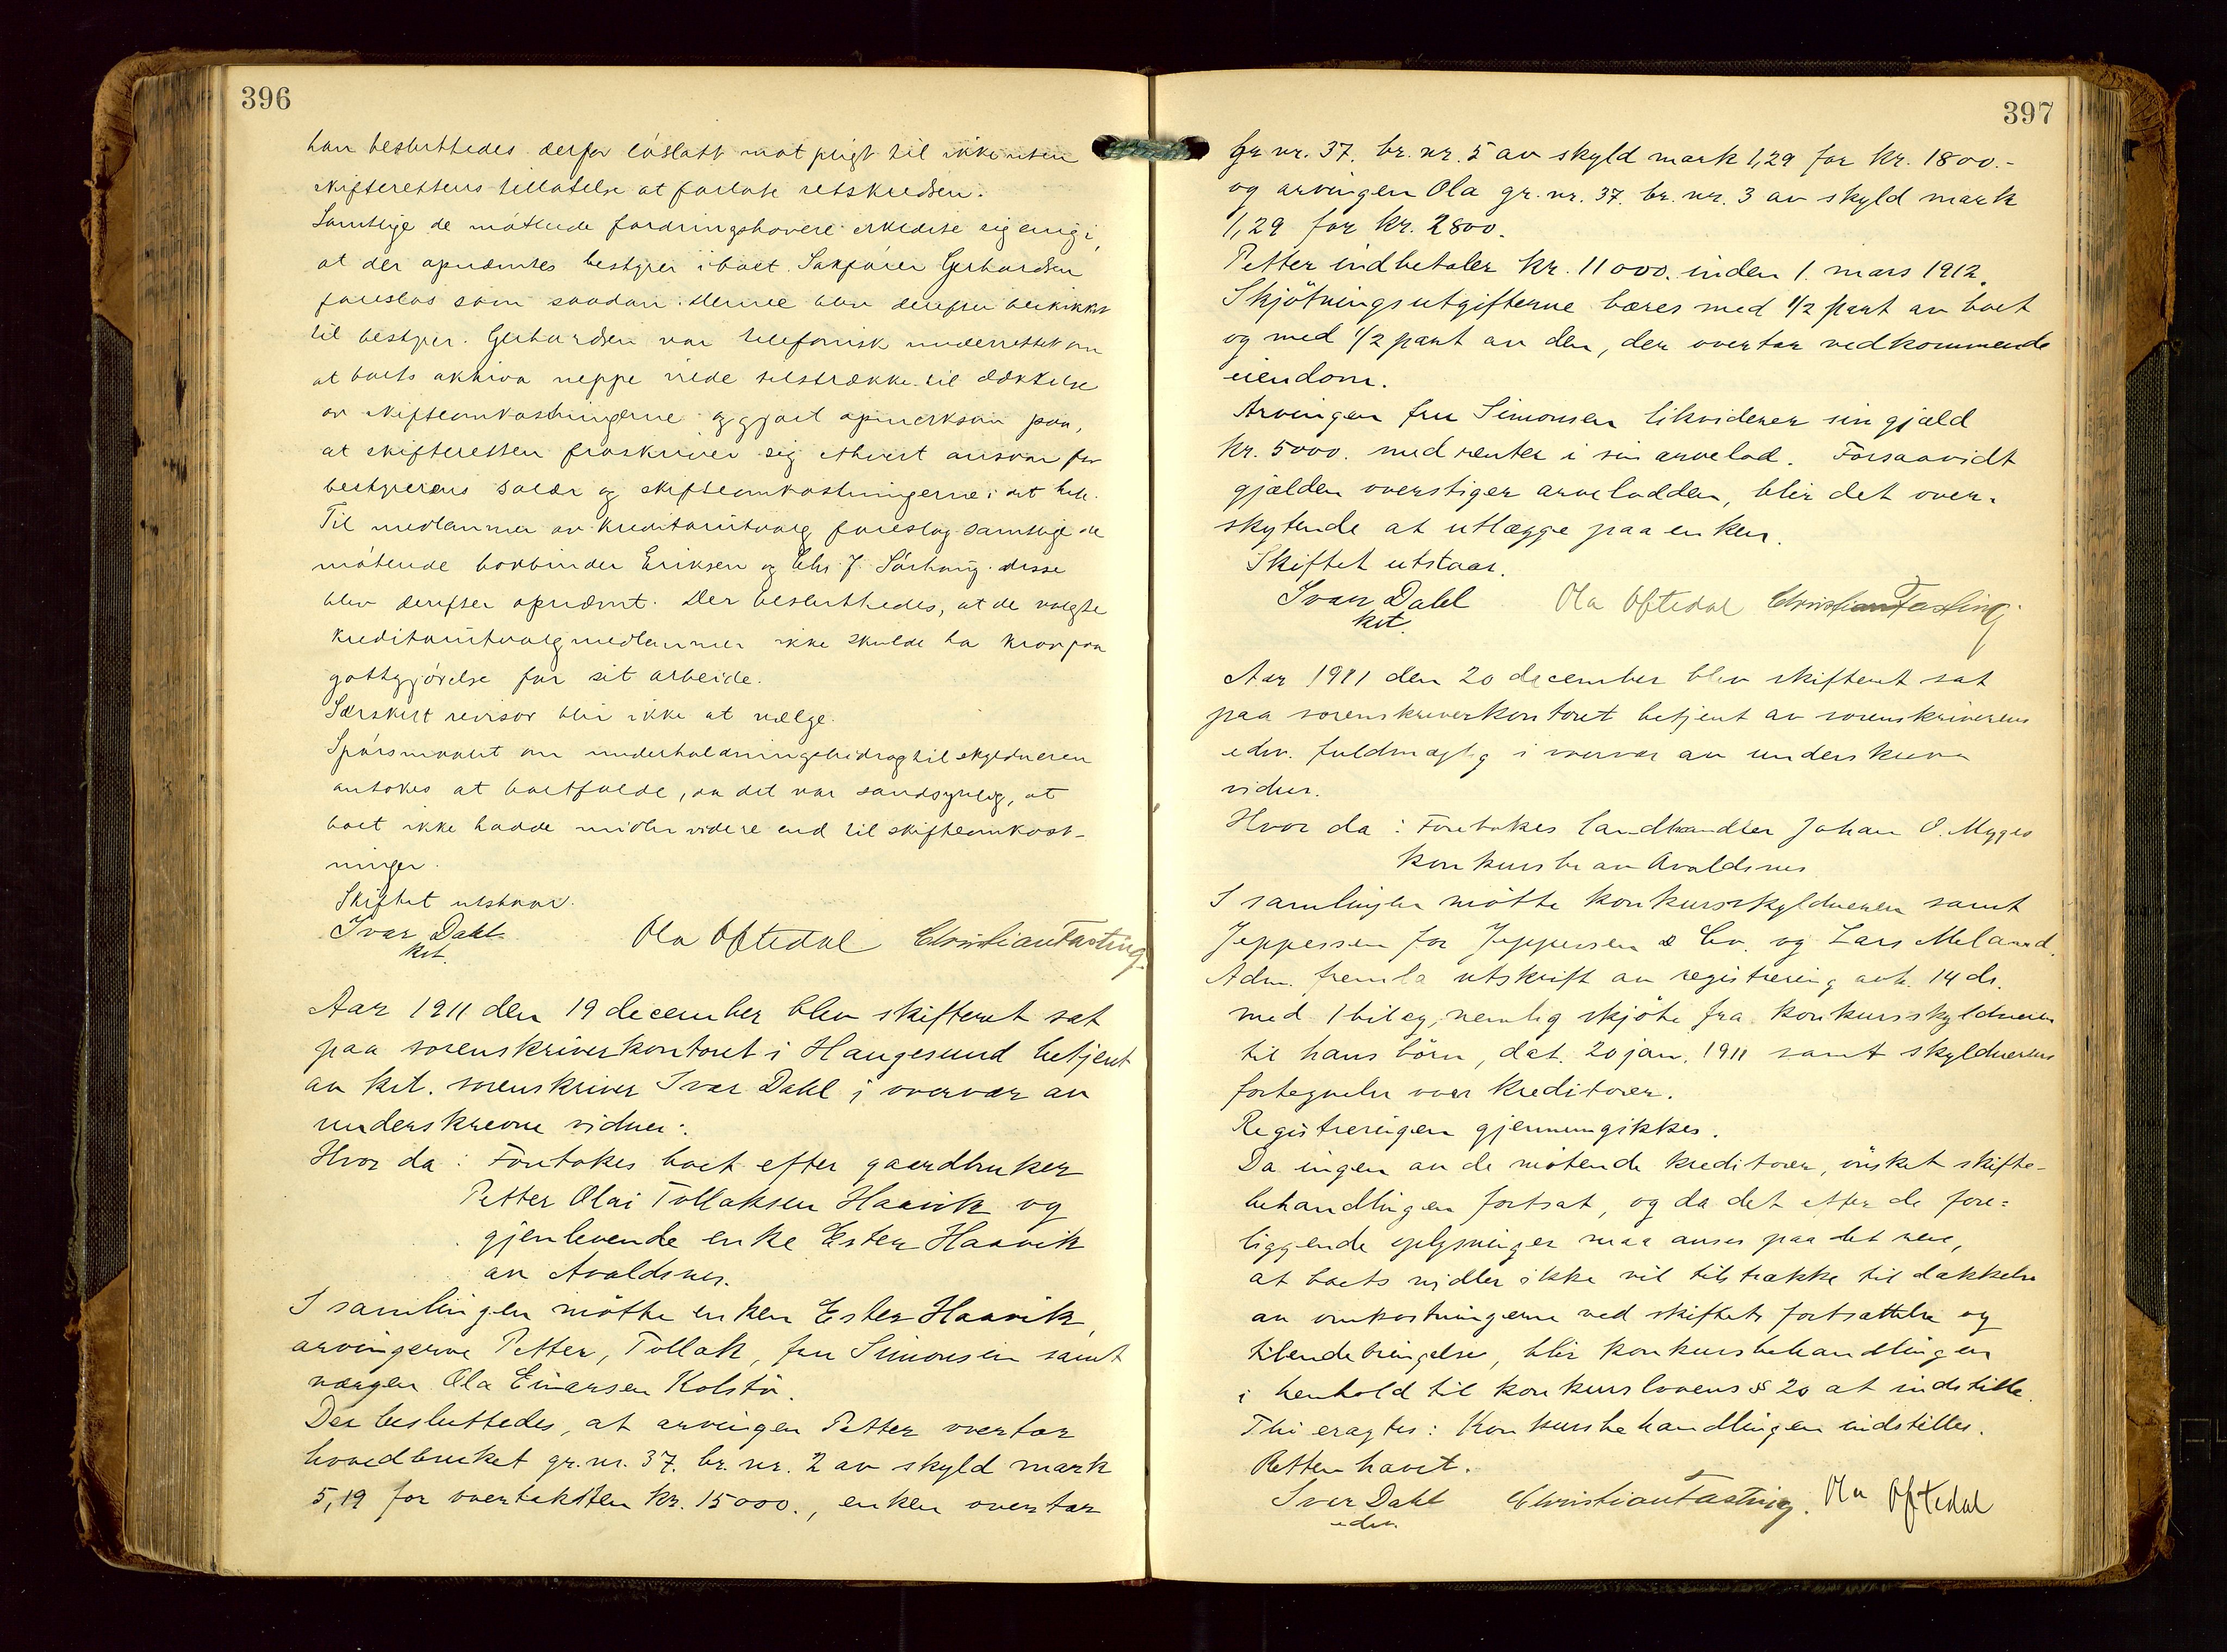 396
han besluttedes derfor löslatt mot pligt til ikke uten
skifterettens tillatelse at forlate retskredsen.
Samtlige de mötende fordringshavere erklærte sig enig i,
at der opnævntes bestyrer i boet. Sakförer Gerhardsen
foreslos som saadan. Denne blev derefter beskikket
til bestyrer. Gerhardsen var telefonisk underrettet om
at boets aktiva neppe vilde tilstrække til dækkelse
av skifteomkostningerne og gjort opmerksom paa,
at skifteretten fraskriver sig ethvert ansvar for
bestyrerens salær og skifteomkostningerne i det hele.
Til medlemmer av kreditorutvalg foreslog samtlige de
mötende bokbinder Eriksen og Chr. J. Sörhaug. disse
blev derefter opnævnt. Der besluttedes, at de valgte
kreditorutvalgmedlemmer ikke skulde ha krav paa
godtgjörelse for sit arbeide.
Særskilt revisor blir ikke at vælge.
Spörsmaalet om underholdningsbidrag til skyldneren
antokes at bortfalde, da det var sandsynlig, at
boet ikke hadde midler videre end til skifteomkost-
ninger.
Skiftet utstaar.
Ivar Dahl Ola Oftedal Christian Fasting.
kst.
Aar 1911 den 19 december blev skifteret sat
paa sorenskriverkontoret i Haugesund betjent
av kst. sorenskriver Ivar Dahl i overvær av
underskrevne vidner:
Hvor da: Foretokes boet efter gaardbruker
Petter Olai Tollaksen Haavik og
gjenlevende enke Ester Haavik
av Avaldsnes.
I samlingen mötte enken Ester Haavik,
arvingerne Petter, Tollak, fru Simonsen samt
værgen Ola Einarsen Kolstö.
Der besluttedes, at arvingen Petter overtar
hovedbruket gr. nr. 37. br. nr. 2 av skyld mark
5,19 for overtaksten kr. 15000., enken overtar
397
gr nr. 37. br. nr. 5 av skyld mark 1,29 for kr. 1800.-
og arvingen Ola gr. nr. 37. br. nr. 3 av skyld mark
1,29 for kr. 2800.
Petter indbetaler kr. 11000. inden 1. mars 1912.
Skjötningsutgifterne bæres med 1/2 part av boet
og med 1/2 part av den, der overtar vedkommende
eiendom.
Arvingen fru Simonsen likviderer sin gjæld
kr. 5000. med renter i sin arvelod. Forsaavidt
gjælden overstiger arvelodden, blir det over-
skytende at utlægge paa enken.
Skiftet utstaar.
Ivar Dahl Ola Oftedal Christian Fasting.
kst.
Aar 1911 den 20 december blev skifteret sat
paa sorenskriverkontoret betjent av sorenskriverens
edsv. fuldmægtig i overvær av underskrevne
vidner.
Hvor da: Foretokes landhandler Johan O. Mygges
konkursbo av Avaldsnes
I samlingen mötte konkursskyldneren samt
Jeppessen for Jeppesen & Co. og Lars Meland.
Adm. fremla utskrift av registrering avh. 14 ds.
med 1 bilag, nemlig skjöte fra konkursskyldneren
til hans börn, dat. 20 jan. 1911 samt skyldnerens
fortegnelse over kreditorer.
Registreringen gjennemgikkes.
Da ingen av de mötende kreditorer, önsket skifte-
behandlingen fortsat, og da det efter de fore-
liggende oplysninger maa anses paa det rene,
at boets midler ikke vil tilstrække til dækkelse
av omkostningerne ved skiftets fortsættelse og
tilendebringelse, blir konkursbehandlingen
i henhold til konkurslovens § 20 at indstille.
Thi eragtes: Konkursbehandlingen indstilles.
Retten hævet.
Ivar Dahl Christian Fasting. Ola Oftedal
edsv.